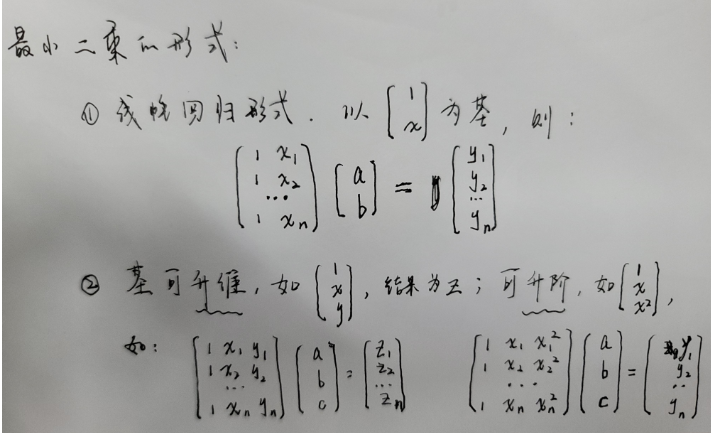 最小二乘的形式:
① 线性回归形式. 以 [1 x] 为基, 则:
[1 x₁ 1 x₂ ... 1 xₙ] [a b] = [y₁ y₂ ... yₙ]
② 基可升维, 如 [1 x y], 结果为 z; 可升阶, 如 [1 x x²],
如: [1 x₁ y₁ 1 x₂ y₂ ... 1 xₙ yₙ] [a b c] = [z₁ z₂ ... zₙ] [1 x₁ x₁² 1 x₂ x₂² ... 1 xₙ xₙ²] [a b c] = [y₁ y₂ .. yₙ]